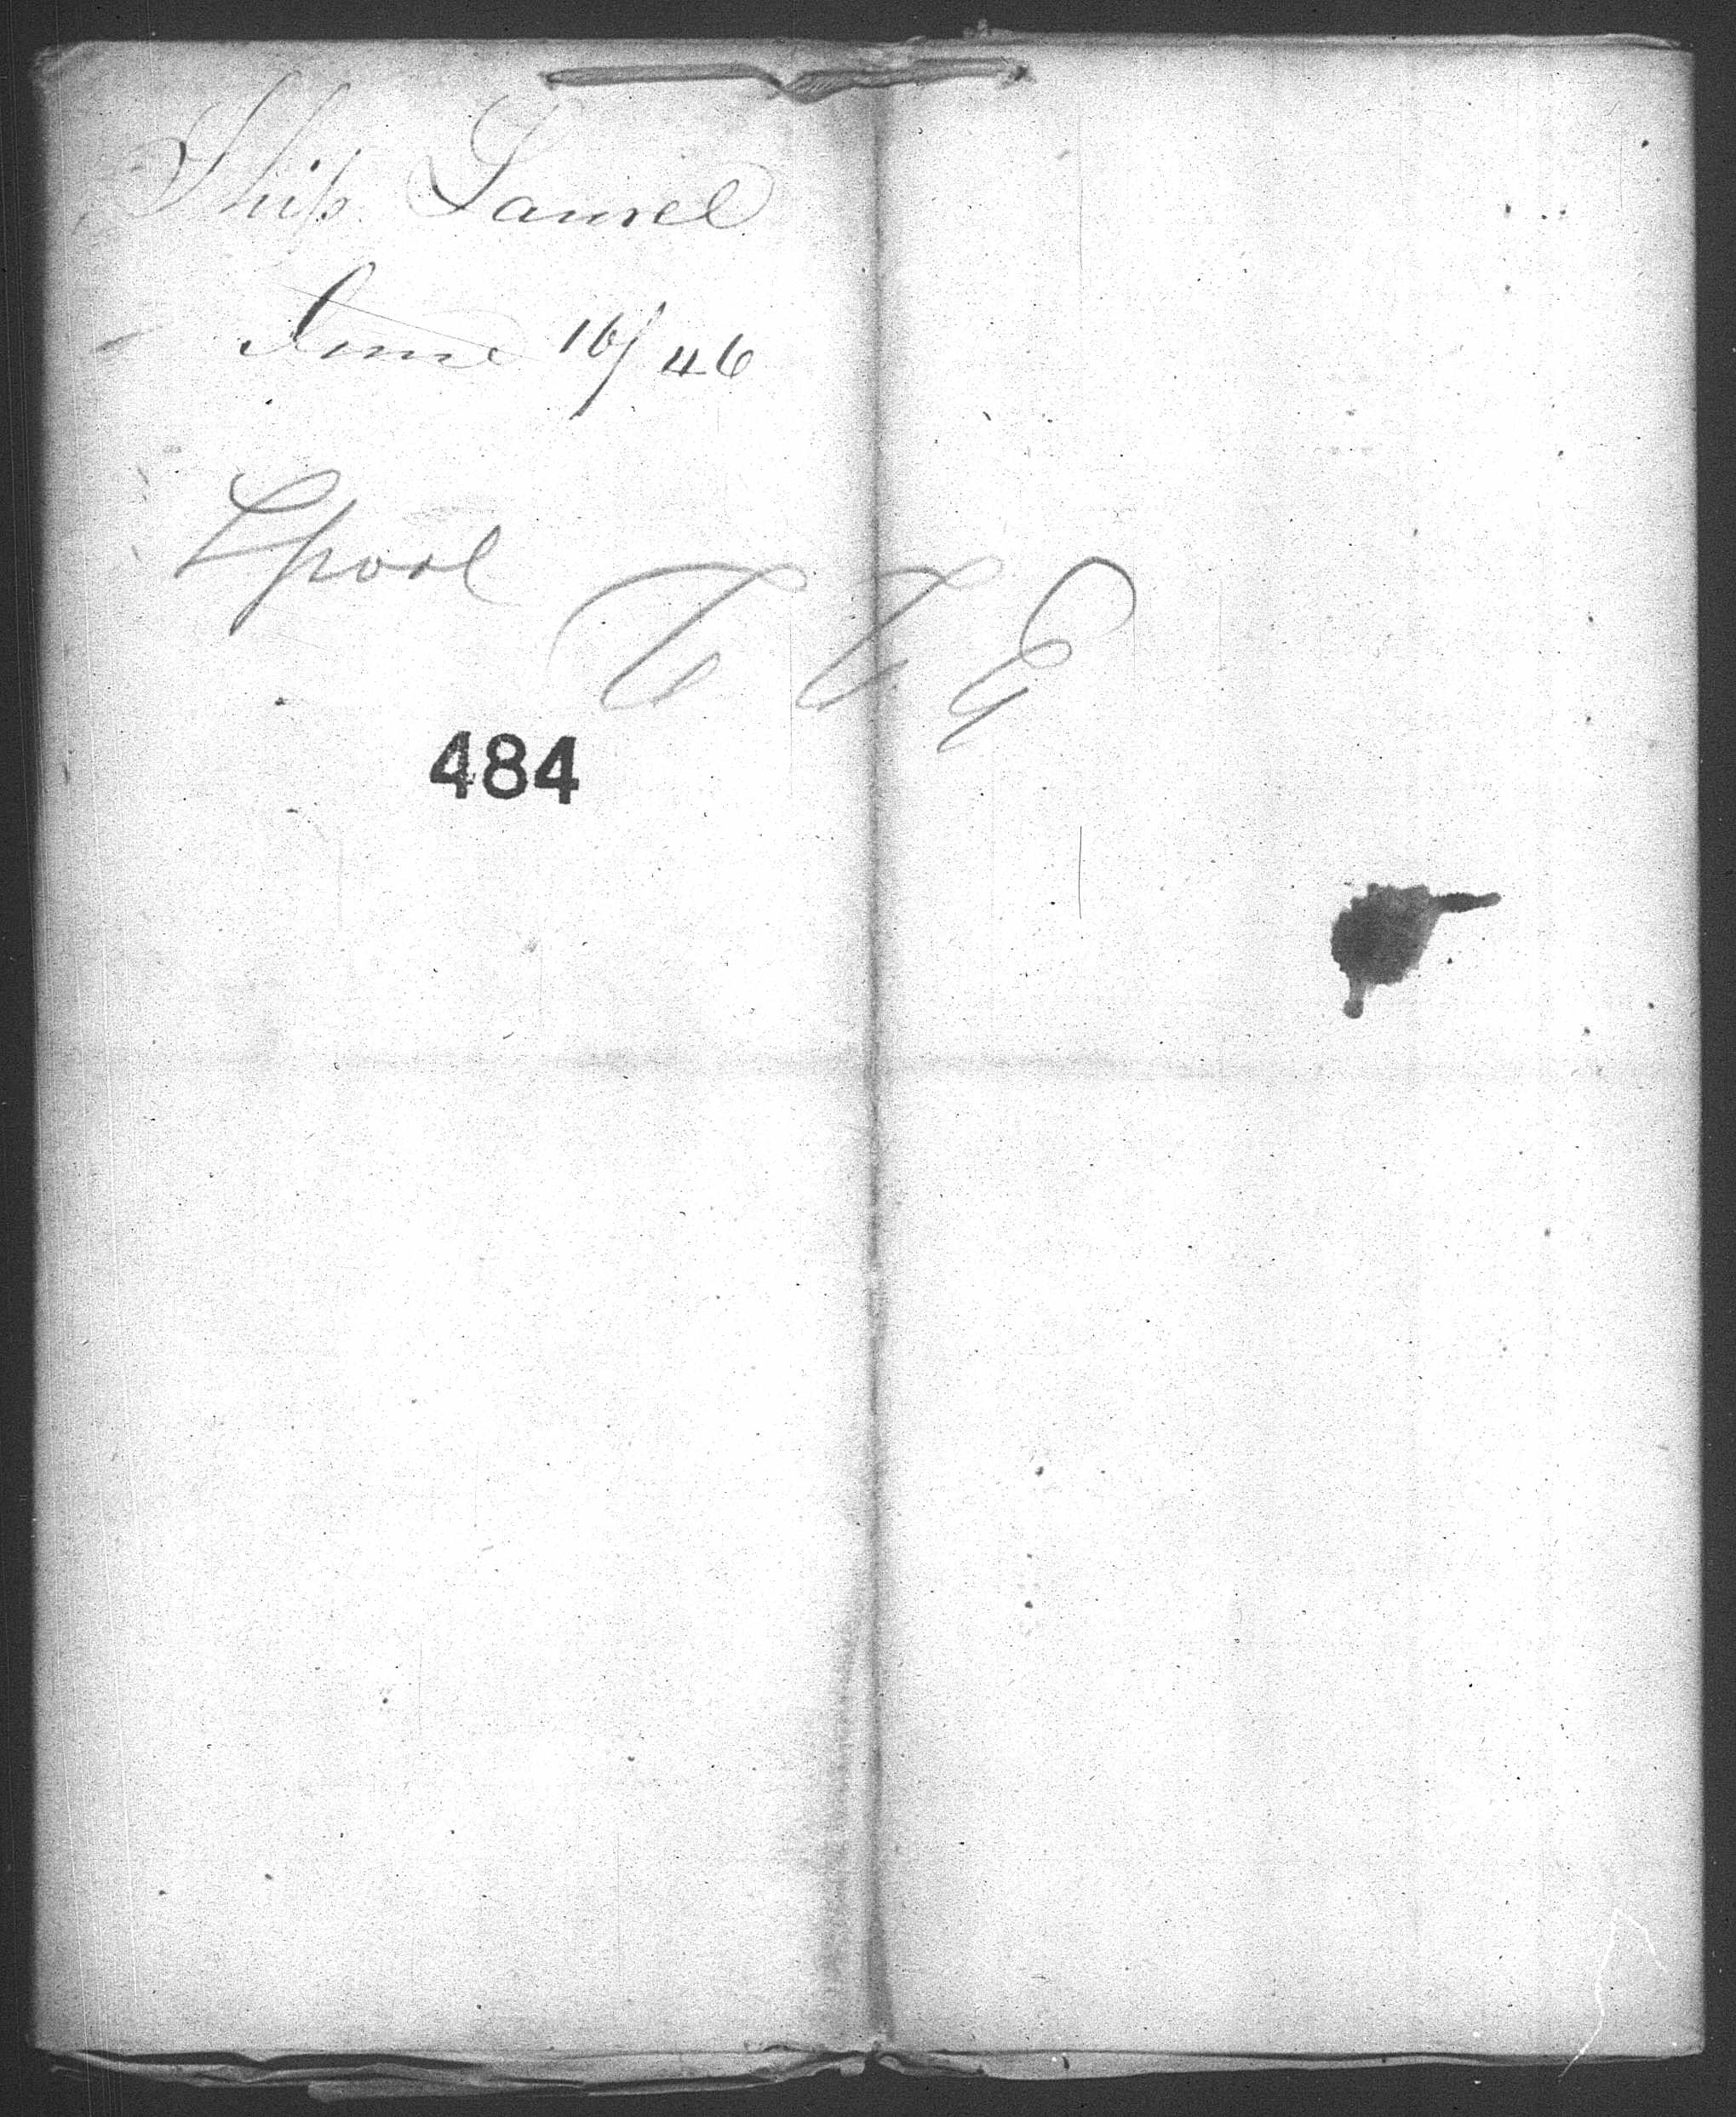 Ship Laurel
June 16/46
Lpool
484